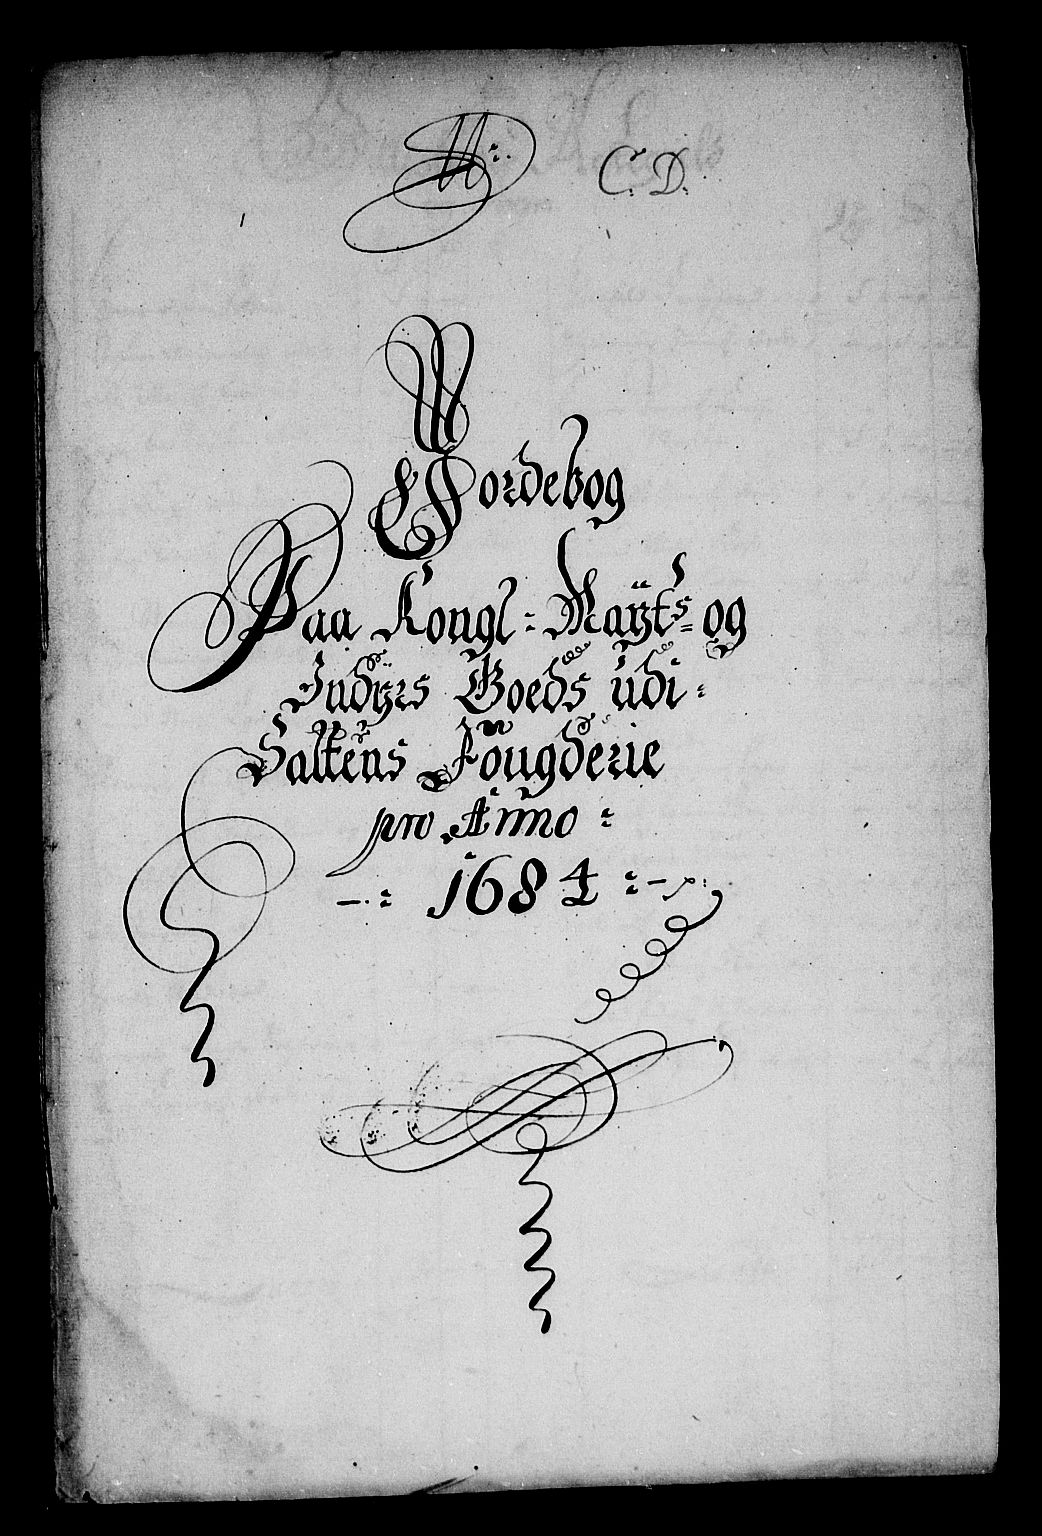 N: C: D:
Jordebog
Paa Kongl: Maÿts: og
Indÿrs Goeds udi
Saltens Fougderie
pro Anno
1684